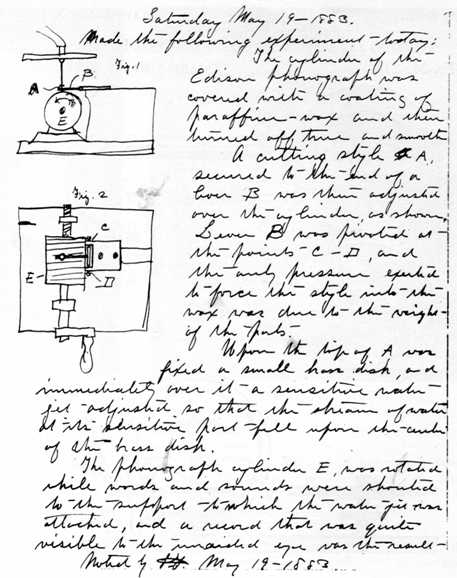 Saturday May 19-1883.
Made the following experiment-today:
Fig. 1
A
B
E
The cylinder of the
Edison phonograph was
covered with a coating of
paraffine-wax and then
turned off true and smooth
A cutting style A,
secured to the end of a
lever B was then adjusted
over the cylinder, as shown.
Lever B was pivoted at
the points C-D, and
the only pressure exerted
to force the style into the
wax was due to the weight
of the parts-
Fig. 2
C
E
D
Upon the top of A was
fixed a small brass disk, and
immediately over it a sensitive water
jet adjusted so that the stream of water
at its sensitive part fell upon the center
of the brass disk.
The phonograph cylinder E, was rotated
while words and sounds were shouted
to the support to which the water jet was
attached, and a record that was quite
visible to the unaided eye was the result-
Noted by May 19-1883....